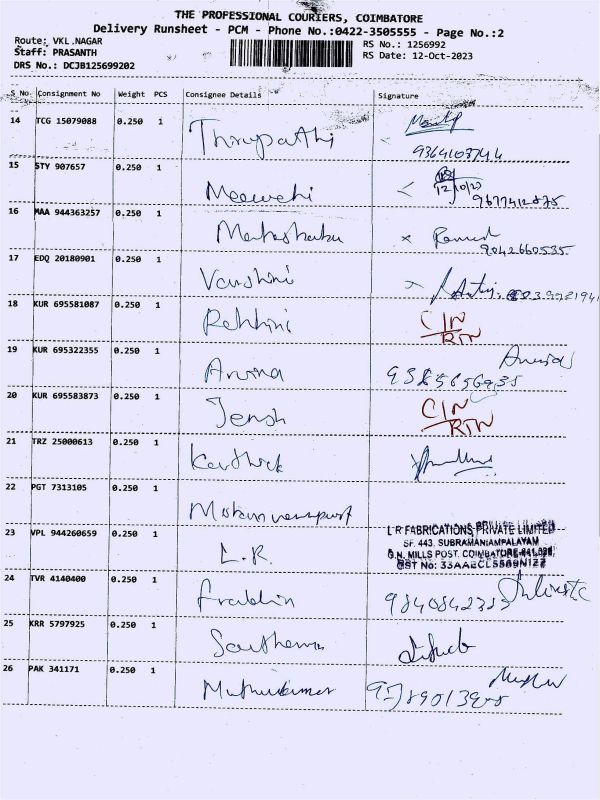 THE PROFESSIONAL COURIERS, COIMBATORE
Delivery Runsheet - PCM - Phone No.:0422-3505555 - Page No.:2
Route: VKL.NAGAR
RS No.: 1256992
Staff: PRASANTH
RS Date: 12-Oct-2023
DRS No.: DCJB125699202
S No Consignment No Weight PCS Consignee Details Signature
14 TCG 15079088 0.250 1 Thirupathi
15 STY 907657 0.250 1 Meenachi 12/10/23
9677412875
16 MAA 944363257 0.250 1 x Ramesh
9042660535
17 EDQ 20180901 0.250 1 Varshini
18 KUR 695581087 0.250 1 Rohhini C/N
RTN
19 KUR 695322355 0.250 1 Aruna
20 KUR 695583873 0.250 1 Jensh C/N
RTN
21 TRZ 25000613 0.250 1 Karthick
22 PGT 7313105 0.250 1
23 VPL 944260659 0.250 1 L.R. L R FABRICATIONS PRIVATE LIMITED
SF. 443, SUBRAMANIAMPALAYAM
G.N. MILLS POST, COIMBATORE-641 029.
GST No: 33AAECL5569N1ZZ
24 TVR 4140400 0.250 1 Franklin
25 KRR 5797925 0.250 1 Southern
26 PAK 341171 0.250 1 Muthukumar